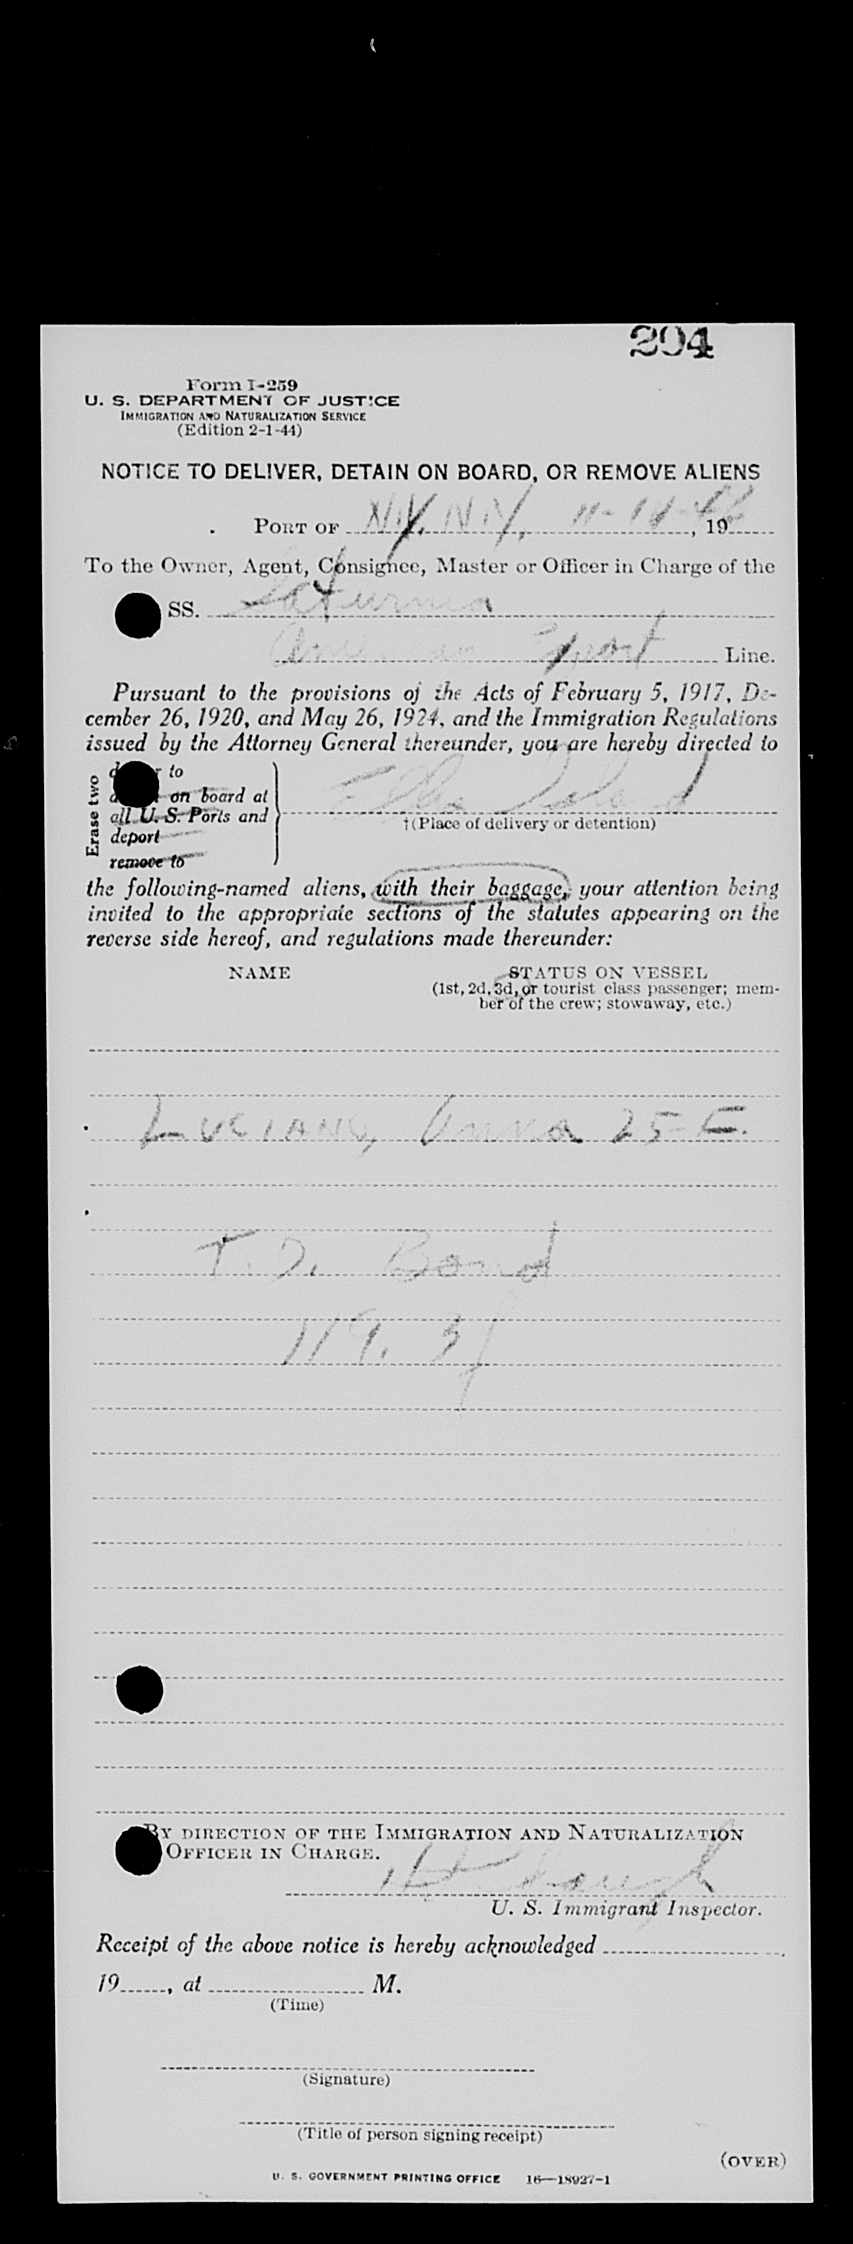 204
Form I-259
U. S. DEPARTMENT OF JUSTICE
IMMIGRATION AND NATURALIZATION SERVICE
(Edition 2-1-44)
NOTICE TO DELIVER, DETAIN ON BOARD, OR REMOVE ALIENS
PORT OF N.Y. N.Y. 11-14-46, 19
To the Owner, Agent, Consignee, Master or Officer in Charge of the
SS. Saturnia
American Export Line.
Pursuant to the provisions of the Acts of February 5, 1917, De-
cember 26, 1920, and May 26, 1924, and the Immigration Regulations
issued by the Attorney General thereunder, you are hereby directed to
Erase two
to
on board at
all U. S. Ports and
deport
remove to
Ellis Island
†(Place of delivery or detention)
the following-named aliens, with their baggage, your attention being
invited to the appropriate sections of the statutes appearing on the
reverse side hereof, and regulations made thereunder:
NAME STATUS ON VESSEL
(1st, 2d, 3d, or tourist class passenger; mem-
ber of the crew; stowaway, etc.)
LUCIANO, Anna 25-E.
T.D. Bond
119.
BY DIRECTION OF THE IMMIGRATION AND NATURALIZATION
OFFICER IN CHARGE.
U. S. Immigrant Inspector.
Receipt of the above notice is hereby acknowledged
19, at M.
(Time)
(Signature)
(Title of person signing receipt)
(OVER)
U. S. GOVERNMENT PRINTING OFFICE 16—18927-1